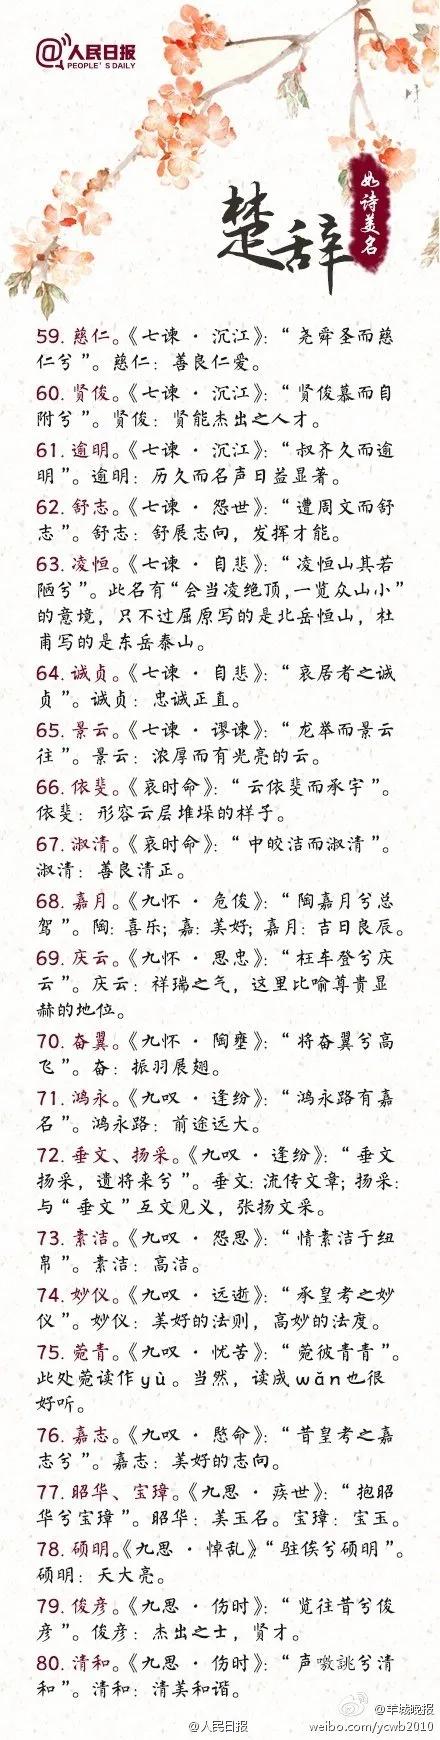 @人民日报
PEOPLE'S DAILY
楚辞
如诗美名
59. 慈仁。《七谏·沉江》：“尧舜圣而慈
仁兮”。慈仁：善良仁爱。
60. 贤俊。《七谏·沉江》：“贤俊慕而自
附兮”。贤俊：贤能杰出之人才。
61. 逾明。《七谏·沉江》：“叔齐久而逾
明”。逾明：历久而名声日益显著。
62. 舒志。《七谏·怨世》：“遭周文而舒
志”。舒志：舒展志向，发挥才能。
63. 凌恒。《七谏·自悲》：“凌恒山其若
陋兮”。此名有“会当凌绝顶，一览众山小”
的意境，只不过屈原写的是北岳恒山，杜
甫写的是东岳泰山。
64. 诚贞。《七谏·自悲》：“哀居者之诚
贞”。诚贞：忠诚正直。
65. 景云。《七谏·谬谏》：“龙举而景云
往”。景云：浓厚而有光亮的云。
66. 依斐。《哀时命》：“云依斐而承宇”。
依斐：形容云层堆垛的样子。
67. 淑清。《哀时命》：“中皎洁而淑清”。
淑清：善良清正。
68. 嘉月。《九怀·危俊》：“陶嘉月兮总
驾”。陶：喜乐；嘉：美好；嘉月：吉日良辰。
69. 庆云。《九怀·思忠》：“枉车登兮庆
云”。庆云：祥瑞之气，这里比喻尊贵显
赫的地位。
70. 奋翼。《九怀·陶壅》：“将奋翼兮高
飞”。奋：振羽展翅。
71. 鸿永。《九叹·逢纷》：“鸿永路有嘉
名”。鸿永路：前途远大。
72. 垂文、扬采。《九叹·逢纷》：“垂文
扬采，遗将来兮”。垂文：流传文章；扬采：
与“垂文”互文见义，张扬文采。
73. 素洁。《九叹·怨思》：“情素洁于纽
帛”。素洁：高洁。
74. 妙仪。《九叹·远逝》：“承皇考之妙
仪”。妙仪：美好的法则，高妙的法度。
75. 菀青。《九叹·忧苦》：“菀彼青青”。
此处菀读作yù。当然，读成wǎn也很
好听。
76. 嘉志。《九叹·愍命》：“昔皇考之嘉
志兮”。嘉志：美好的志向。
77. 昭华、宝璋。《九思·疾世》：“抱昭
华兮宝璋”。昭华：美玉名。宝璋：宝玉。
78. 硕明。《九思·悼乱》：“驻俟兮硕明”。
硕明：天大亮。
79. 俊彦。《九思·伤时》：“览往昔兮俊
彦”。俊彦：杰出之士，贤才。
80. 清和。《九思·伤时》：“声噭誂兮清
和”。清和：清美和谐。
@人民日报
@羊城晚报
weibo.com/ycwb2010